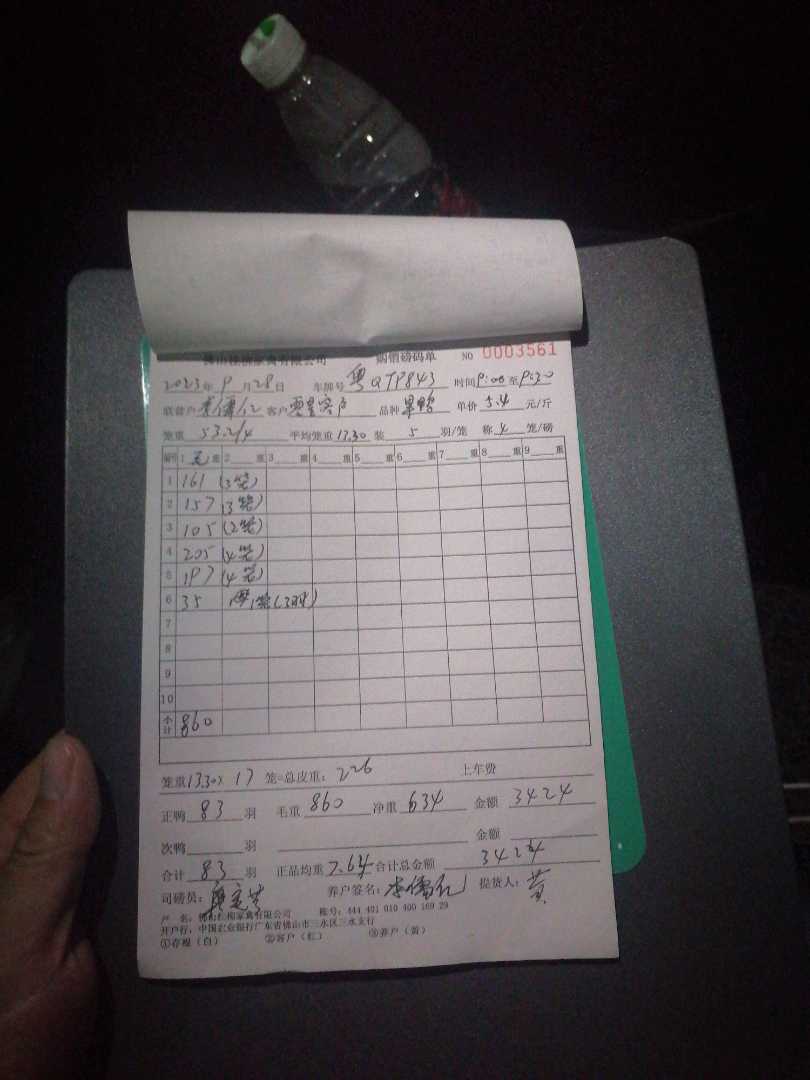 佛山桂柳家禽有限公司 购销磅码单 NO 0003561
2023年9月28日 车牌号 粤QTP843 时间9:00至9:30
联营户 李儒仁 客户 零星客户 品种 单价 5.4 元/斤
笼重 53.2/4 平均笼重13.30 装 5 羽/笼 称 4 笼/磅
编号 1 毛 重 2 重 3 重 4 重 5 重 6 重 7 重 8 重 9 重
1 161 (3笼)
2 157 (3笼)
3 105 (2笼)
4 205 (4笼)
5 197 (4笼)
6 35 1笼(3羽)
7
8
9
10
小计 860
笼重13.30× 17 笼=总皮重: 226 上车费
正鸭 83 羽 毛重 860 净重 634 金额 3424
次鸭 羽 金额
合计 83 羽 正品均重 7.64 合计总金额 3424
司磅员: 养户签名: 李儒仁 提货人: 黄
户 名: 佛山桂柳家禽有限公司 账号: 444 401 010 400 169 29
开户行: 中国农业银行广东省佛山市三水区三水支行
①存根(白) ②客户(红) ③养户(黄)